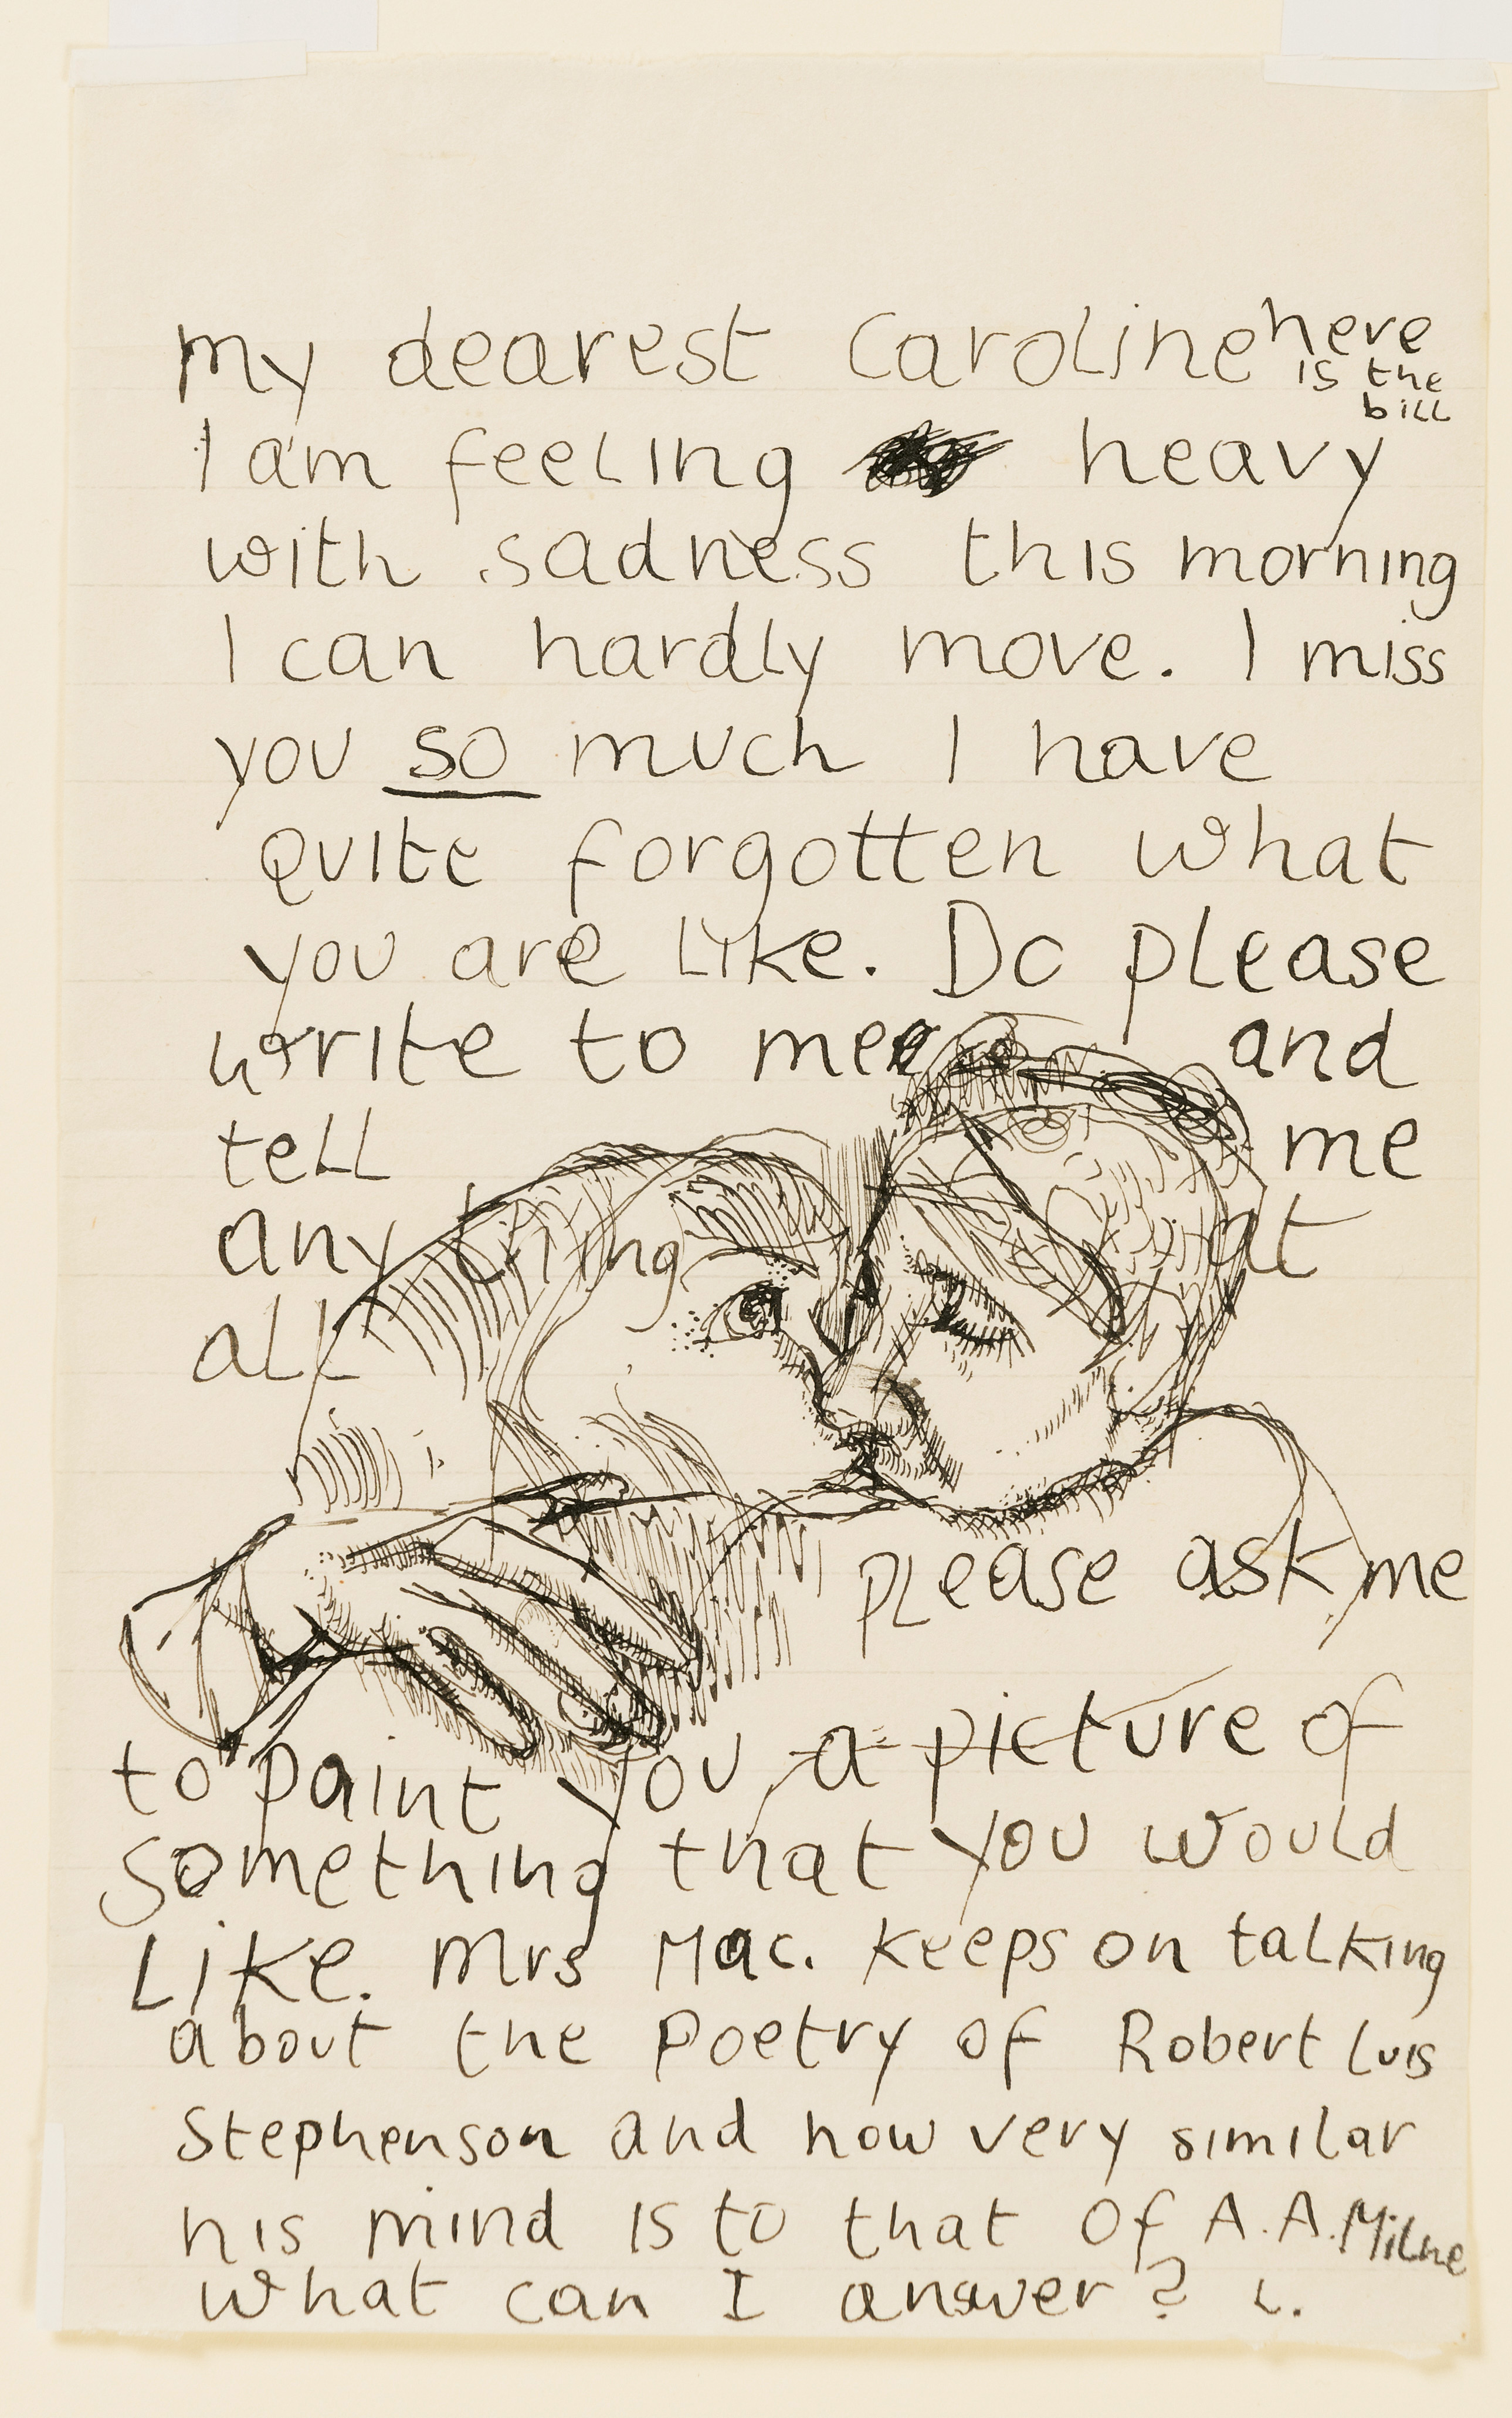 my dearest Caroline here
is the
bill
I am feeling heavy
with sadness this morning
I can hardly move. I miss
you so much I have
quite forgotten what
you are like. Do please
write to me and
tell me
any thing at
all
please ask me
to paint you a picture of
something that you would
Like. Mrs Mac. keeps on talking
about the poetry of Robert Luis
Stephenson and how very similar
his mind is to that of A.A. Milne
what can I answer? L.